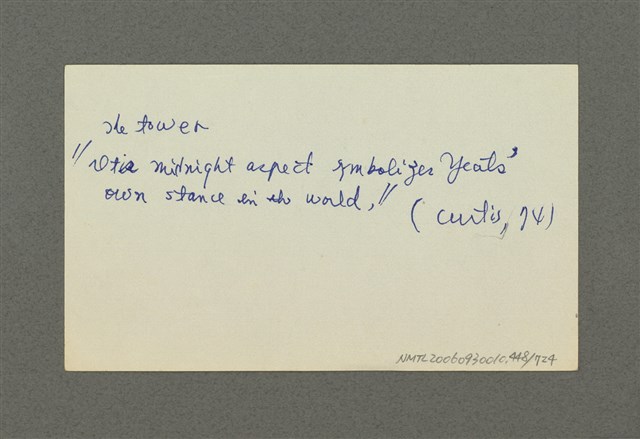 The tower
"Its midnight aspect symbolizes Yeats'
own stance in the world,"
(Curtis, 74)
NMTL20060930010.448/724